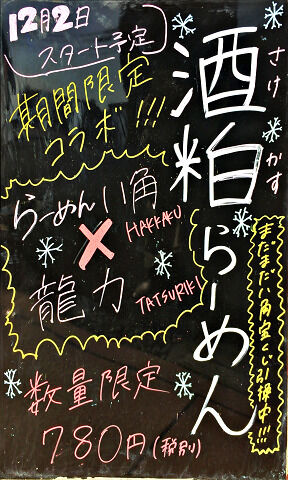 12月2日
スタート予定
酒粕らーめん
さけ かす
期間限定
コラボ!!!
らーめん八角
HAKKAKU
×
龍力
TATSURIKI
まだまだ八角宝くじ引換中!!!
数量限定
780円(税別)